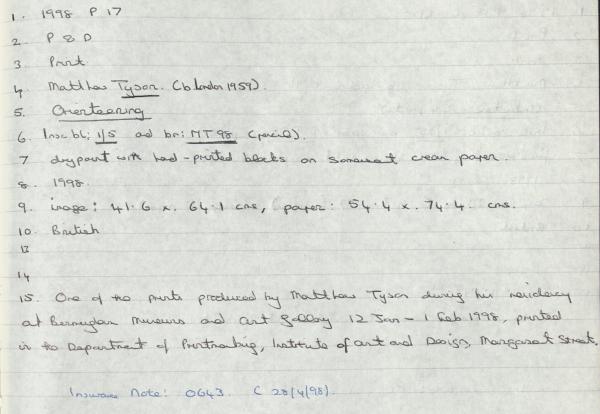 1. 1998 P 17
2 P & D
3 Print
4. Matthew Tyson. (b London 1959).
5. Orienteering
6. Insc bl: 1/5 and br: MT 98 (pencil).
7 drypoint with hand-printed blocks on somerset cream paper.
8. 1998.
9. image: 41.6 x 64.1 cms, paper: 54.4 x 74.4 cms.
10. British
13
14
15. One of the prints produced by Matthew Tyson during his residency
at Birmingham Museums and Art Gallery 12 Jan - 1 Feb 1998, printed
in the Department of Printmaking, Institute of art and Design, Margaret Street.
Insurance Note: 0643. C 28/4/98).